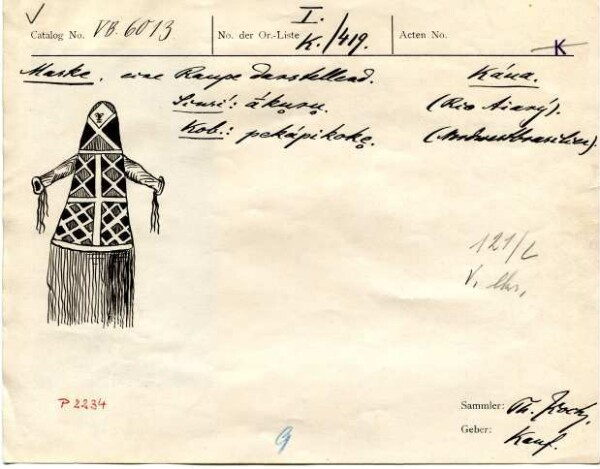 I.
Catalog No. VB. 6013 No. der Or.-Liste K./419. Acten No. K
Maske, eine Raupe darstellend. Kāua.
Siusí: ákuru̥. (Rio Aiarý).
Kob.: pekápikoke̥. (Nordwestbrasilien).
121/L
V.
P 2234
Sammler: Th. Koch.
Geber: Kauf.
g